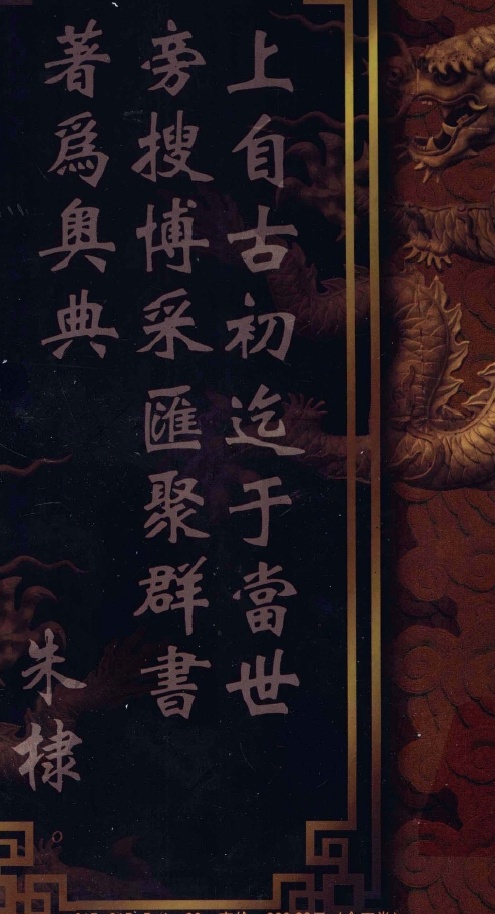 上自古初迄于當世
旁搜博采匯聚群書
著爲奥典
朱棣